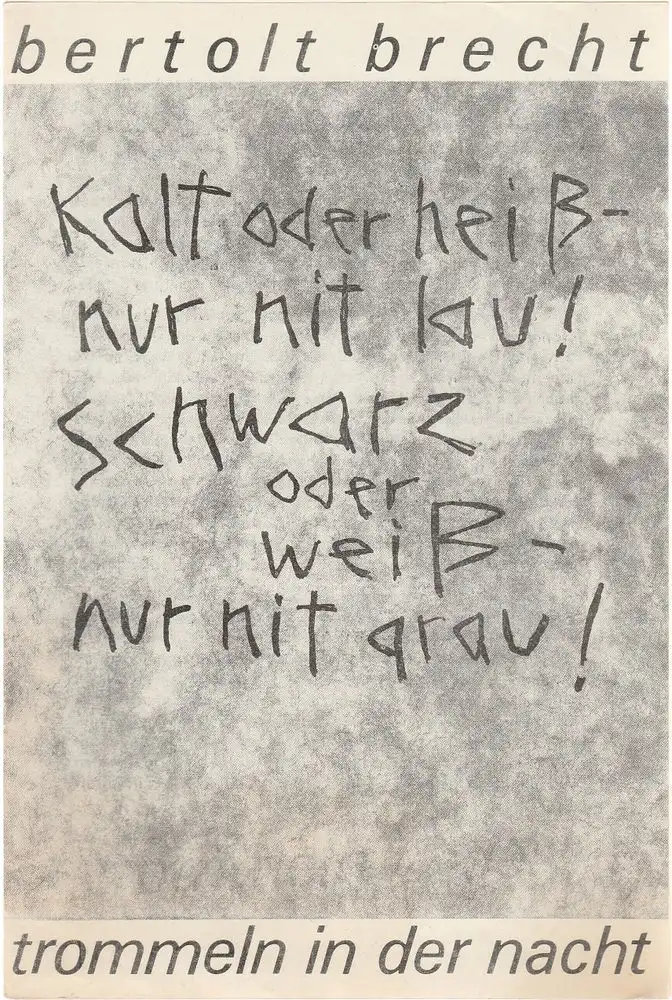 bertolt brecht
Kalt oder heiß-
nur nit lau!
Schwarz
oder
weiß-
nur nit grau!
trommeln in der nacht